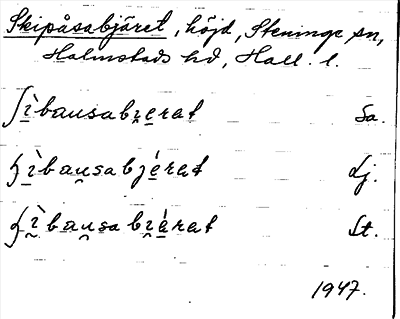 Skipåsabjäret, höjd, Steninge sn,
Halmstads hd, Hall. l.
ʃı̀bausabıerat Sa.
ı̀bausabjérat Lj.
ı̀bausabıérat St.
1947.